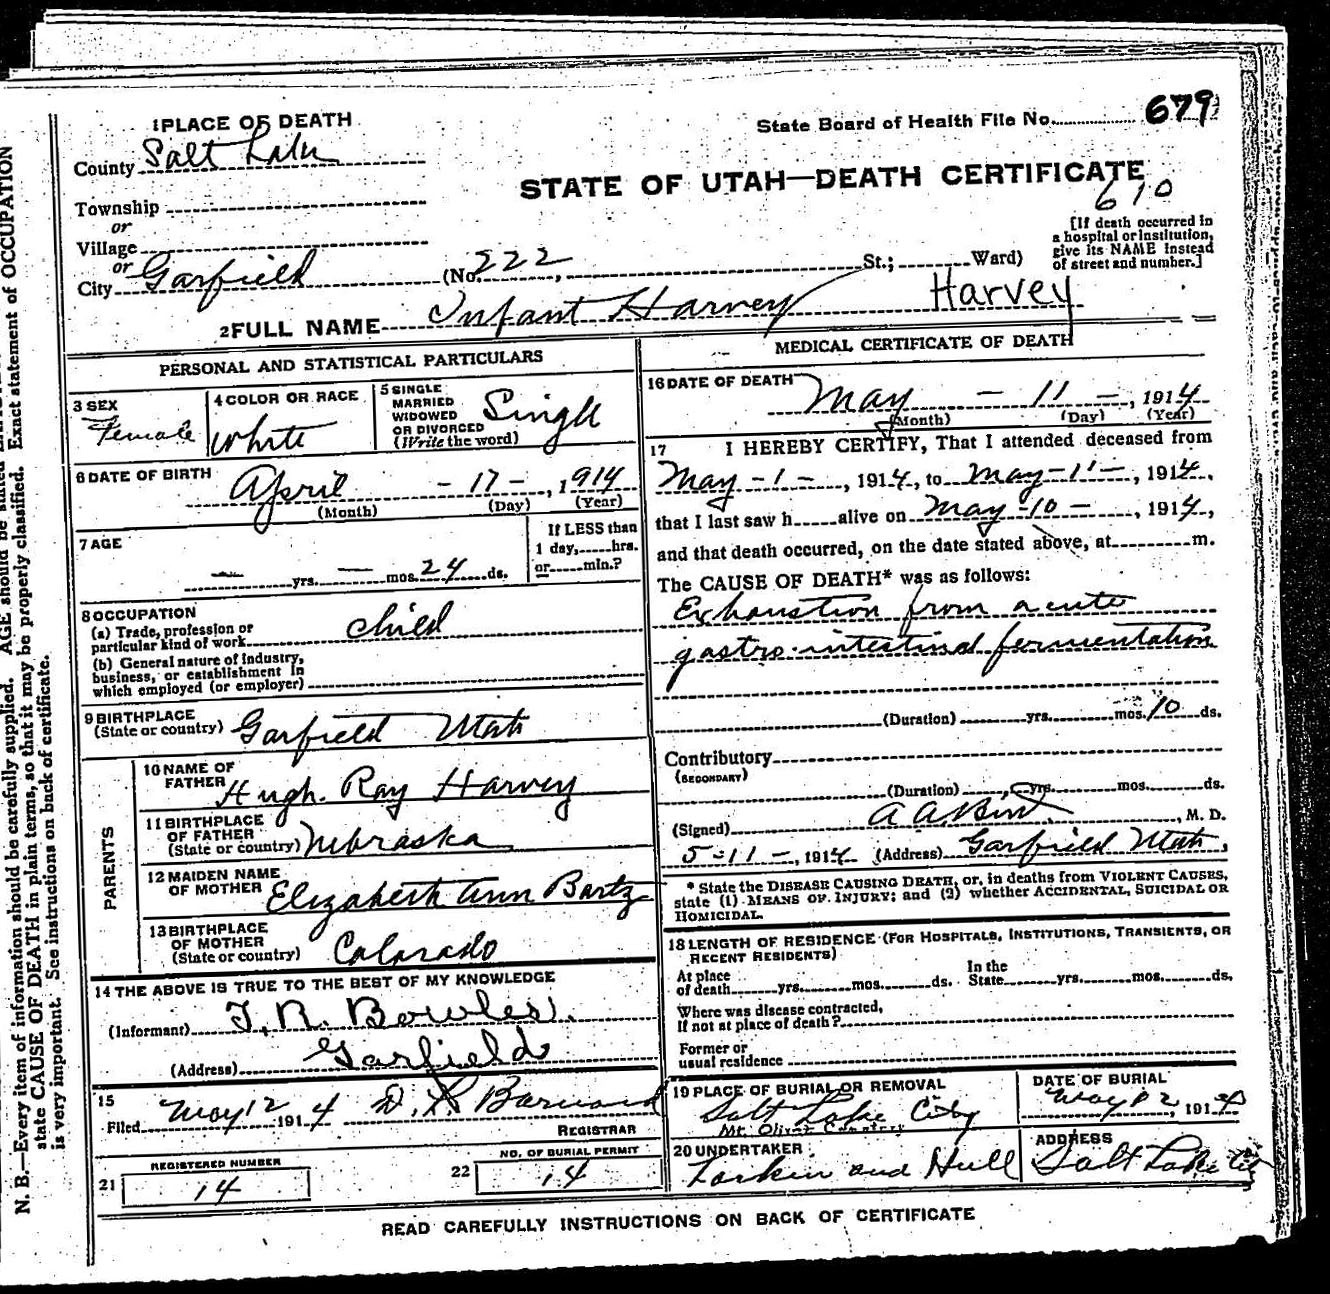 1 PLACE OF DEATH
State Board of Health File No. 679
County Salt Lake
STATE OF UTAH—DEATH CERTIFICATE
610
Township
or
Village
or
City Garfield (No. 222, St.; Ward)
[If death occurred in
a hospital or institution,
give its NAME instead
of street and number.]
2 FULL NAME Infant Harvey Harvey
PERSONAL AND STATISTICAL PARTICULARS
3 SEX Female
4 COLOR OR RACE White
5 SINGLE
MARRIED
WIDOWED
OR DIVORCED
(Write the word) Single
6 DATE OF BIRTH April - 17 - , 1914
(Month) (Day) (Year)
7 AGE
— yrs. — mos. 24 ds.
If LESS than
1 day, hrs.
or min.?
8 OCCUPATION
(a) Trade, profession or
particular kind of work child
(b) General nature of industry,
business, or establishment in
which employed (or employer)
9 BIRTHPLACE
(State or country) Garfield Utah
PARENTS
10 NAME OF
FATHER Hugh Ray Harvey
11 BIRTHPLACE
OF FATHER
(State or country) Nebraska
12 MAIDEN NAME
OF MOTHER Elizabeth Ann Bartz
13 BIRTHPLACE
OF MOTHER
(State or country) Colorado
14 THE ABOVE IS TRUE TO THE BEST OF MY KNOWLEDGE
(Informant) T. R. Bowles.
(Address) Garfield
15
Filed May 12 1914 D. L. Barnard
REGISTRAR
REGISTERED NUMBER
21 14
NO. OF BURIAL PERMIT
22 14
MEDICAL CERTIFICATE OF DEATH
16 DATE OF DEATH May - 11 - , 1914
(Month) (Day) (Year)
17 I HEREBY CERTIFY, That I attended deceased from
May - 1 - , 1914, to May - 11 - , 1914,
that I last saw h alive on May - 10 - , 1914,
and that death occurred, on the date stated above, at m.
The CAUSE OF DEATH* was as follows:
Exhaustion from acute
gastro-intestinal fermentation
(Duration) yrs. mos. 10 ds.
Contributory
(SECONDARY)
(Duration) yrs. mos. ds.
(Signed) A A , M. D.
5-11-, 1914 (Address) Garfield Utah,
* State the DISEASE CAUSING DEATH, or, in deaths from VIOLENT CAUSES,
state (1) MEANS OF INJURY; and (2) whether ACCIDENTAL, SUICIDAL OR
HOMICIDAL.
18 LENGTH OF RESIDENCE (FOR HOSPITALS, INSTITUTIONS, TRANSIENTS, OR
RECENT RESIDENTS)
At place
of death yrs. mos. ds.
In the
State yrs. mos. ds.
Where was disease contracted,
if not at place of death?
Former or
usual residence
19 PLACE OF BURIAL OR REMOVAL
Salt Lake City
Mt. Olivet Cemetery
DATE OF BURIAL
May 12, 1914
20 UNDERTAKER
Larkin and Hull
ADDRESS
Salt Lake City
READ CAREFULLY INSTRUCTIONS ON BACK OF CERTIFICATE
N. B.—Every item of information should be carefully supplied. AGE should be stated Exact statement of OCCUPATION
state CAUSE OF DEATH in plain terms, so that it may be properly classified.
is very important. See instructions on back of certificate.